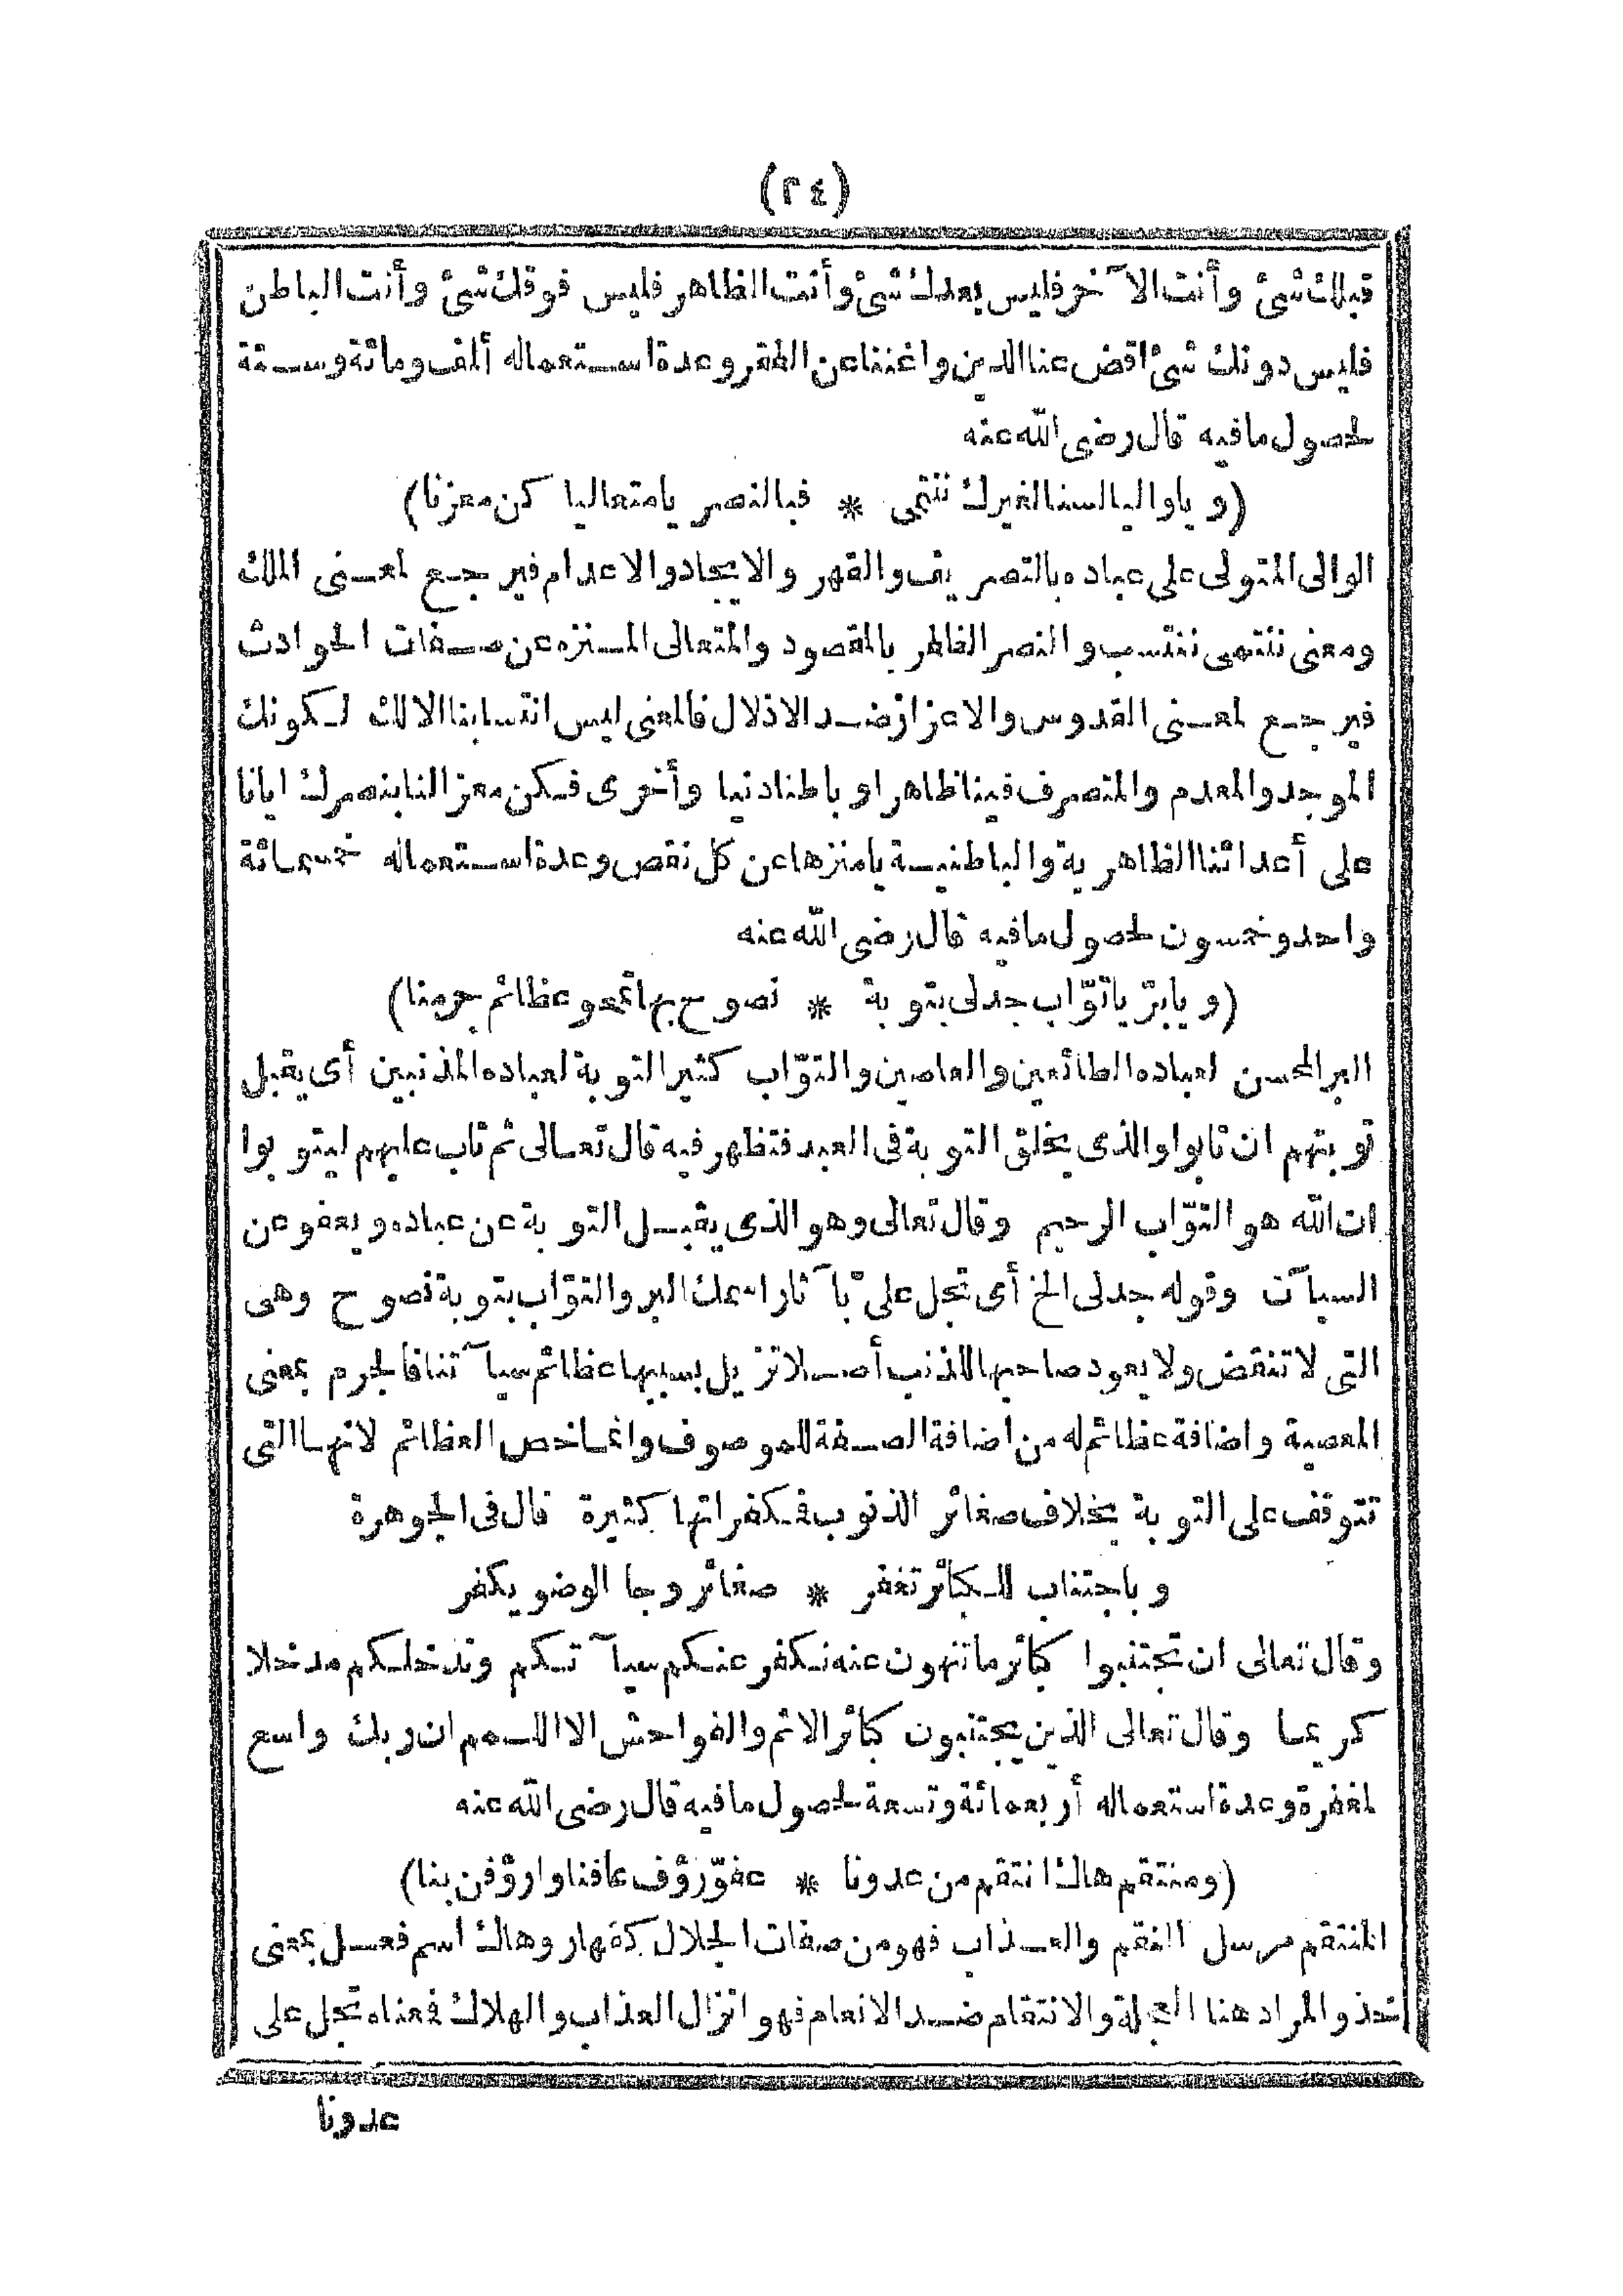 (٢٤)
قبلك شئ وأنت الآخر فليس بعدك شئ وأنت الظاهر فليس فوقك شئ وأنت الباطن
فليس دونك شئ اقض عنا الدين واغننا عن الفقر وعدة استعماله ألف ومائة وستة
لحصول ما فيه قال رضى الله عنه
(ويا واليا لسنا لغيرك ننتمى * فبالنصر يا متعاليا كن معزنا)
الوالى المتولى على عباده بالتصريف والقهر والايجاد والاعدام فيرجع لمعنى الملك
ومعنى ننتمى ننتسب والنصر الظفر بالمقصود والمتعالى المنزه عن صفات الحوادث
فيرجع لمعنى القدوس والاعزاز ضد الاذلال فالمعنى ليس انتسابنا الا لك لكونك
الموجد والمعدم والمتصرف فينا ظاهرا وباطنا دنيا وأخرى فكن معزا لنا بنصرك ايانا
على أعدائنا الظاهرية والباطنية يا منزها عن كل نقص وعدة استعماله خمسمائة
واحد وخمسون لحصول ما فيه قال رضى الله عنه
(ويا برّ يا توّاب جد لى بتوبة * نصوح بها تمحو عظائم جرمنا)
البر المحسن لعباده الطائعين والعاصين والتوّاب كثير التوبة لعباده المذنبين أى يقبل
توبتهم ان تابوا والذى يخلق التوبة فى العبد فتظهر فيه قال تعالى ثم تاب عليهم ليتوبوا
ان الله هو التوّاب الرحيم وقال تعالى وهو الذى يقبل التوبة عن عباده ويعفو عن
السيآت وقوله جد لى الخ أى تجل علىّ بآثار اسمك البر والتوّاب بتوبة نصوح وهى
التى لا تنقض ولا يعود صاحبها للذنب أصلا تزيل بسببها عظائم سيآتنا فالجرم بمعنى
المعصية واضافة عظائم له من اضافة الصفة للموصوف وانما خص العظائم لانها التى
تتوقف على التوبة بخلاف صغائر الذنوب فكفراتها كثيرة قال فى الجوهرة
وباجتناب للكبائر تغفر * صغائر وجا الوضو يكفر
وقال تعالى ان تجتنبوا كبائر ما تنهون عنه نكفر عنكم سيآتكم وندخلكم مدخلا
كريما وقال تعالى الذين يجتنبون كبائر الاثم والفواحش الا اللمم ان ربك واسع
المغفرة وعدة استعماله أربعمائة وتسعة لحصول ما فيه قال رضى الله عنه
(ومنتقم هاك انتقم من عدونا * عفوّ رؤف عافنا وارؤفن بنا)
المنتقم مرسل النقم والعذاب فهو من صفات الجلال كقهار وهاك اسم فعل بمعنى
خذ والمراد هنا العجلة والانتقام ضد الانعام فهو انزال العذاب والهلاك فمعناه تجل على
عدونا